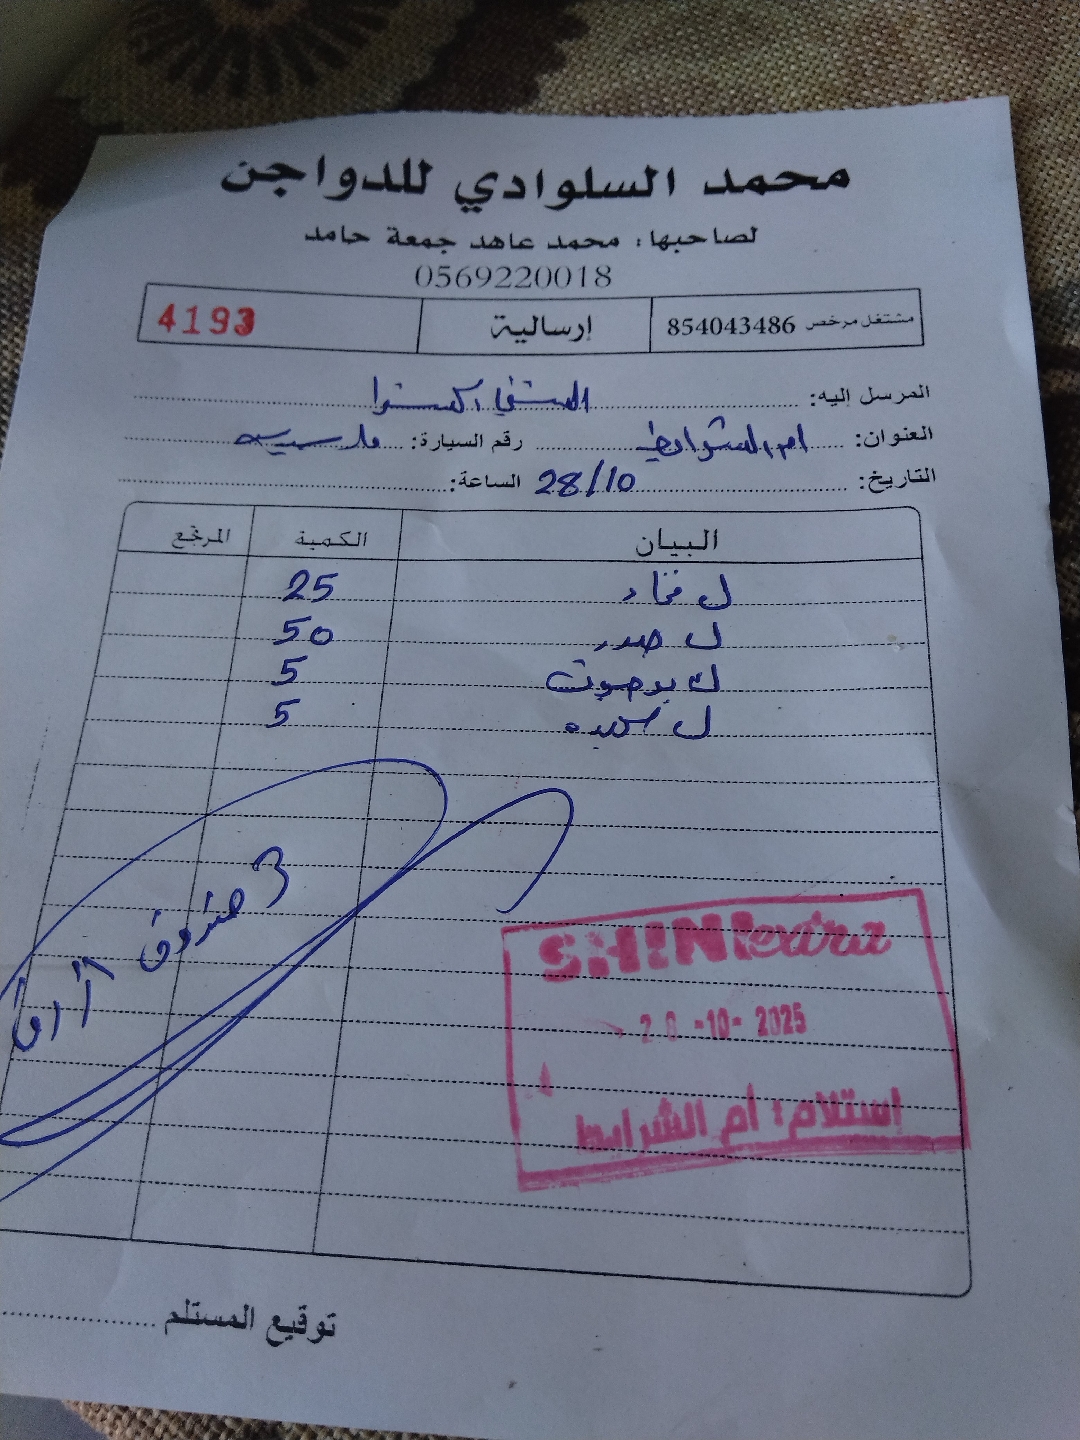 محمد السلوادي للدواجن
لصاحبها: محمد عاهد جمعة حامد
0569220018
مشتغل مرخص 854043486 إرسالية 4193
المرسل إليه:
العنوان: ام الشرايط رقم السيارة:
التاريخ: 28/10 الساعة:
البيان الكمية المرتجع
ك فخاد 25
ك صدر 50
ك 5
ك كبده 5
3 صندوق ازرق
SHINI extra
28-10-2025
إستلام: أم الشرايط
توقيع المستلم